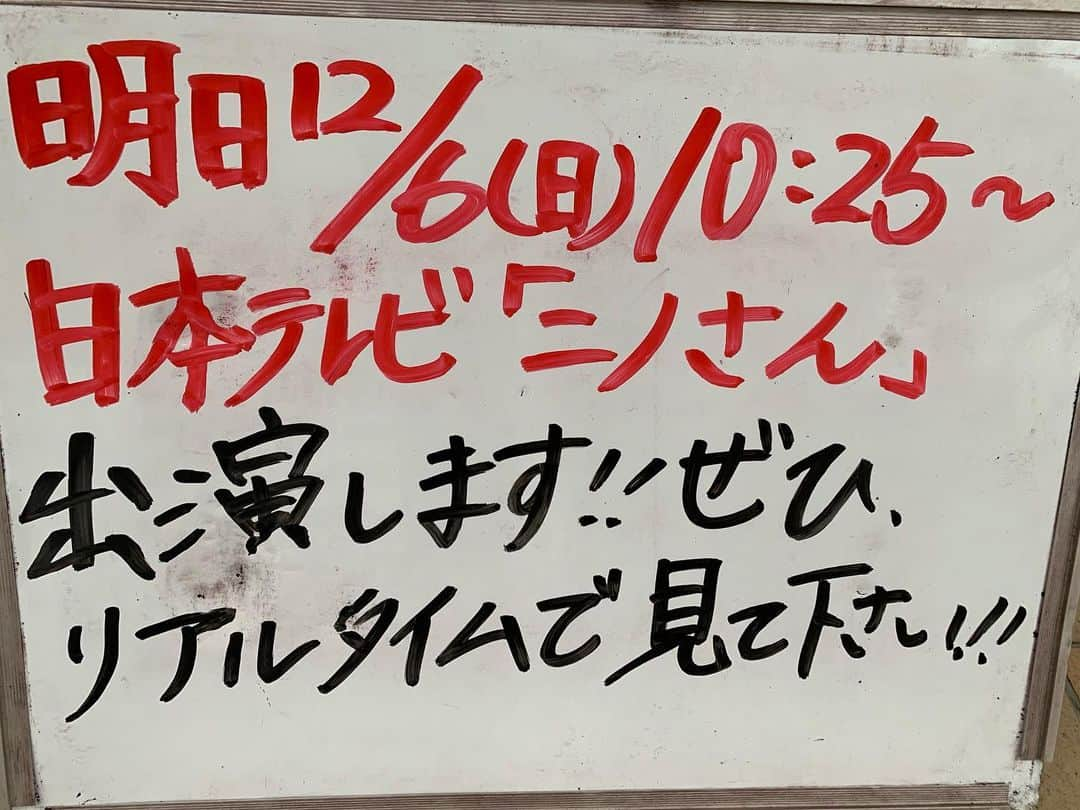 明日12/6(日)10:25〜
日本テレビ「ニノさん」
出演します!!ぜひ、
リアルタイムで見て下さい!!!